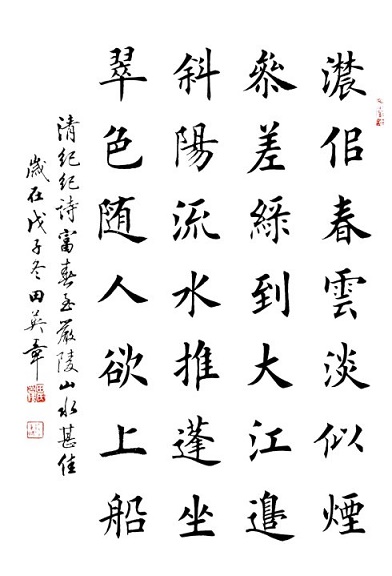 濃佀春雲淡似煙
叅差綠到大江邉
斜陽流水推蓬坐
翠色随人欲上船
清紀紀詩富春至嚴陵山水甚佳
歲在戊子冬田英章